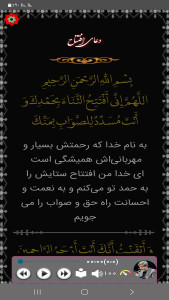 دعای افتتاح
بِسْمِ اللَّهِ الرَّحْمَنِ الرَّحِيمِ
اللَّهُمَّ إِنِّي أَفْتَتِحُ الثَّنَاءَ بِحَمْدِكَ وَ
أَنْتَ مُسَدِّدٌ لِلصَّوَابِ بِمَنِّكَ
به نام خدا که رحمتش بسیار و
مهربانی‌اش همیشگی است
ای خدا من افتتاح ستایش را
به حمد تو می‌کنم و به نعمت و
احسانت راه حق و صواب را می
جویم
وَ أَيْقَنْتُ أَنَّكَ أَنْتَ أَرْحَمُ الرَّاحِمِينَ
100